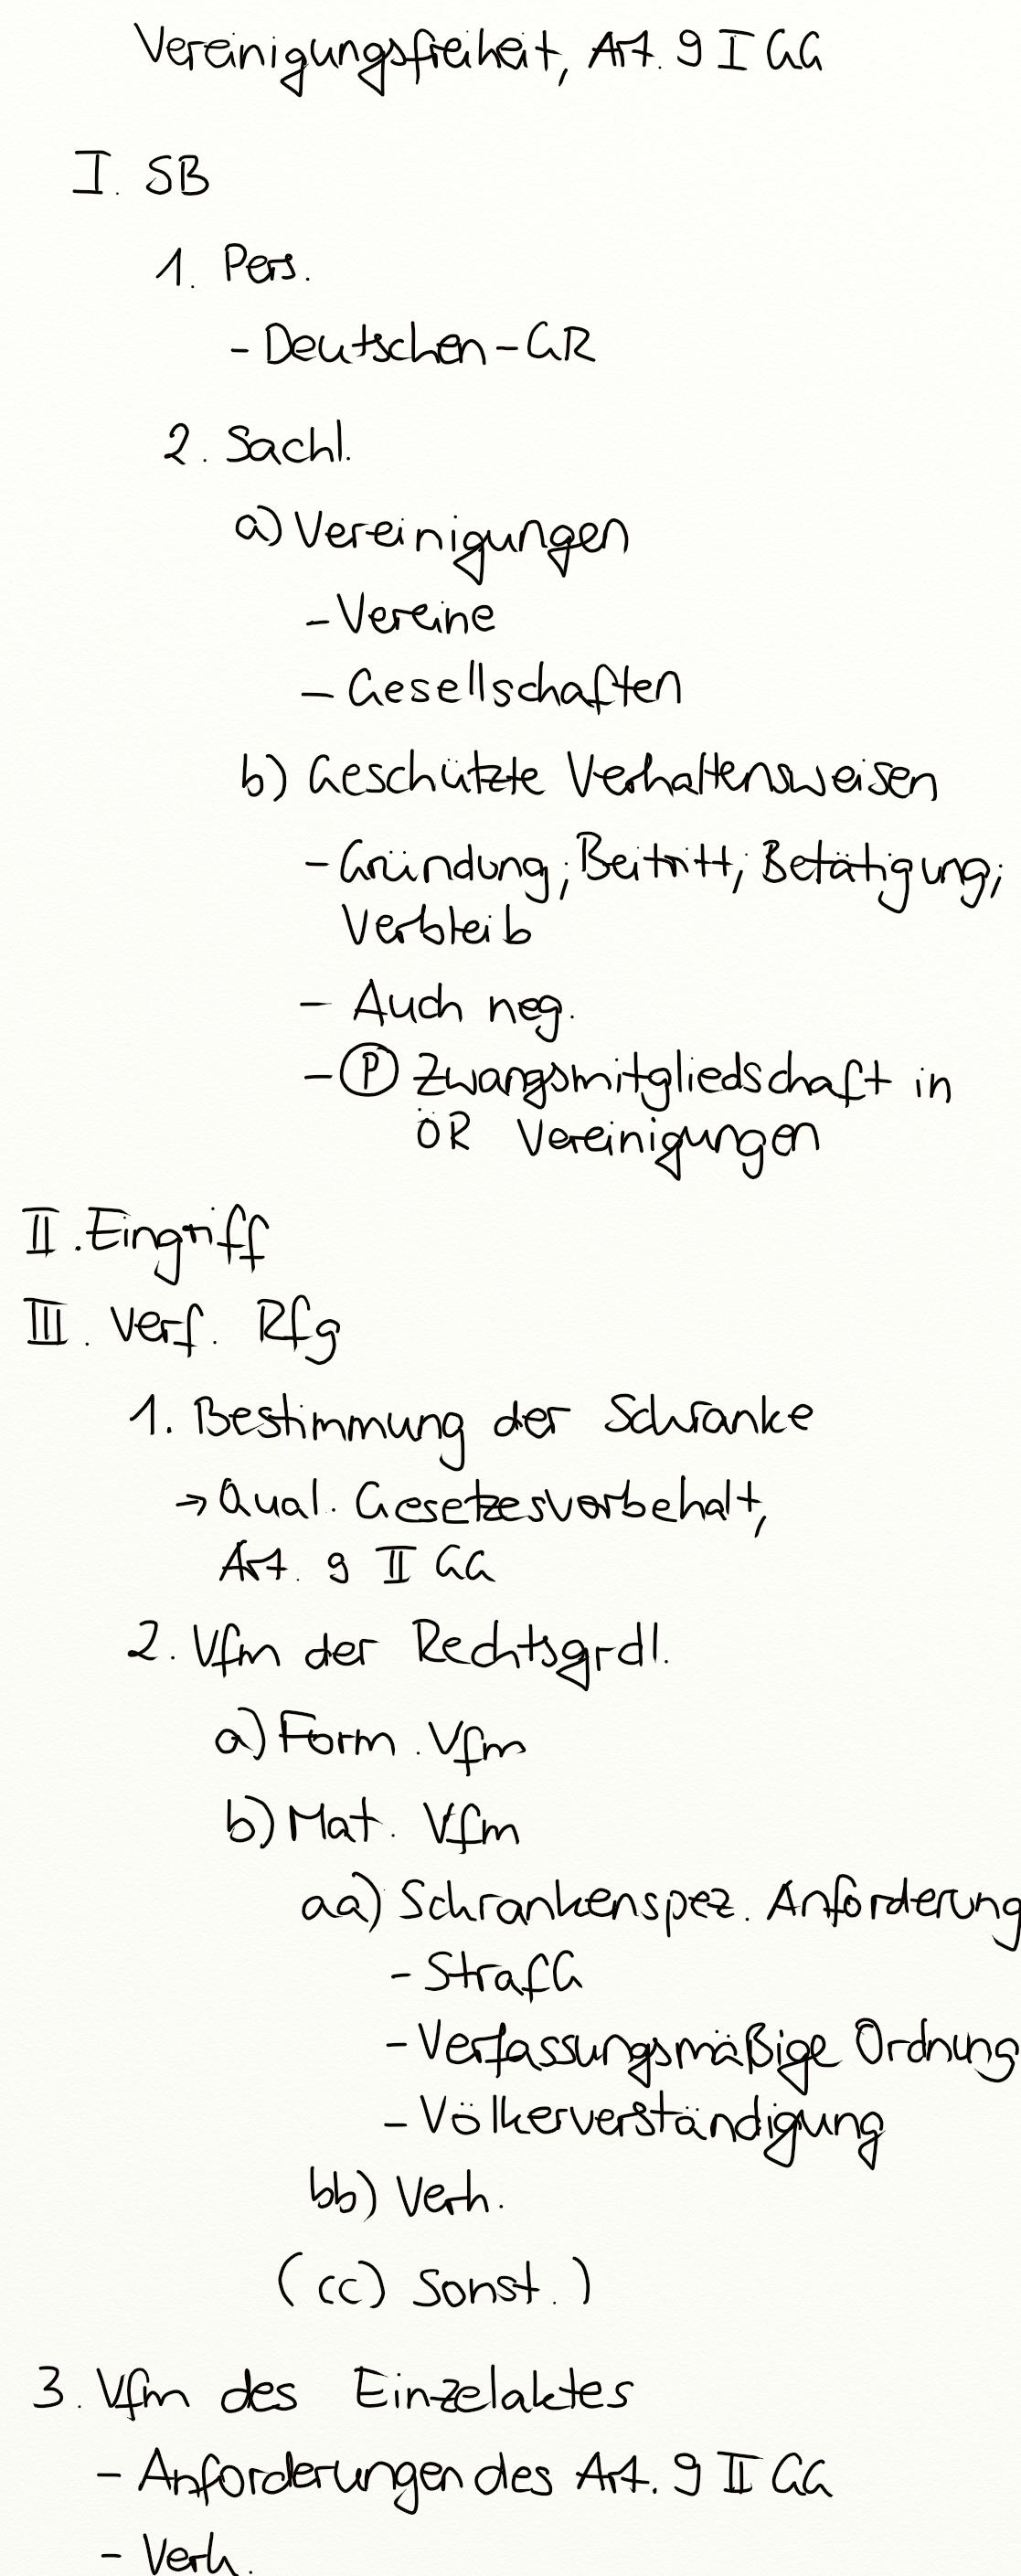 Vereinigungsfreiheit, Art. 9 I GG
I. SB
1. Pers.
- Deutschen-GR
2. Sachl.
a) Vereinigungen
- Vereine
- Gesellschaften
b) Geschützte Verhaltensweisen
- Gründung; Beitritt; Betätigung;
Verbleib
- Auch neg.
- (P) Zwangsmitgliedschaft in
ÖR Vereinigungen
II. Eingriff
III. Verf. Rfg
1. Bestimmung der Schranke
→ Qual. Gesetzesvorbehalt,
Art. 9 II GG
2. Vfm der Rechtsgrdl.
a) Form. Vfm
b) Mat. Vfm
aa) Schrankenspez. Anforderung
- StrafG
- Verfassungsmäßige Ordnung
- Völkerverständigung
bb) Verh.
(cc) Sonst.)
3. Vfm des Einzelaktes
- Anforderungen des Art. 9 II GG
- Verh.